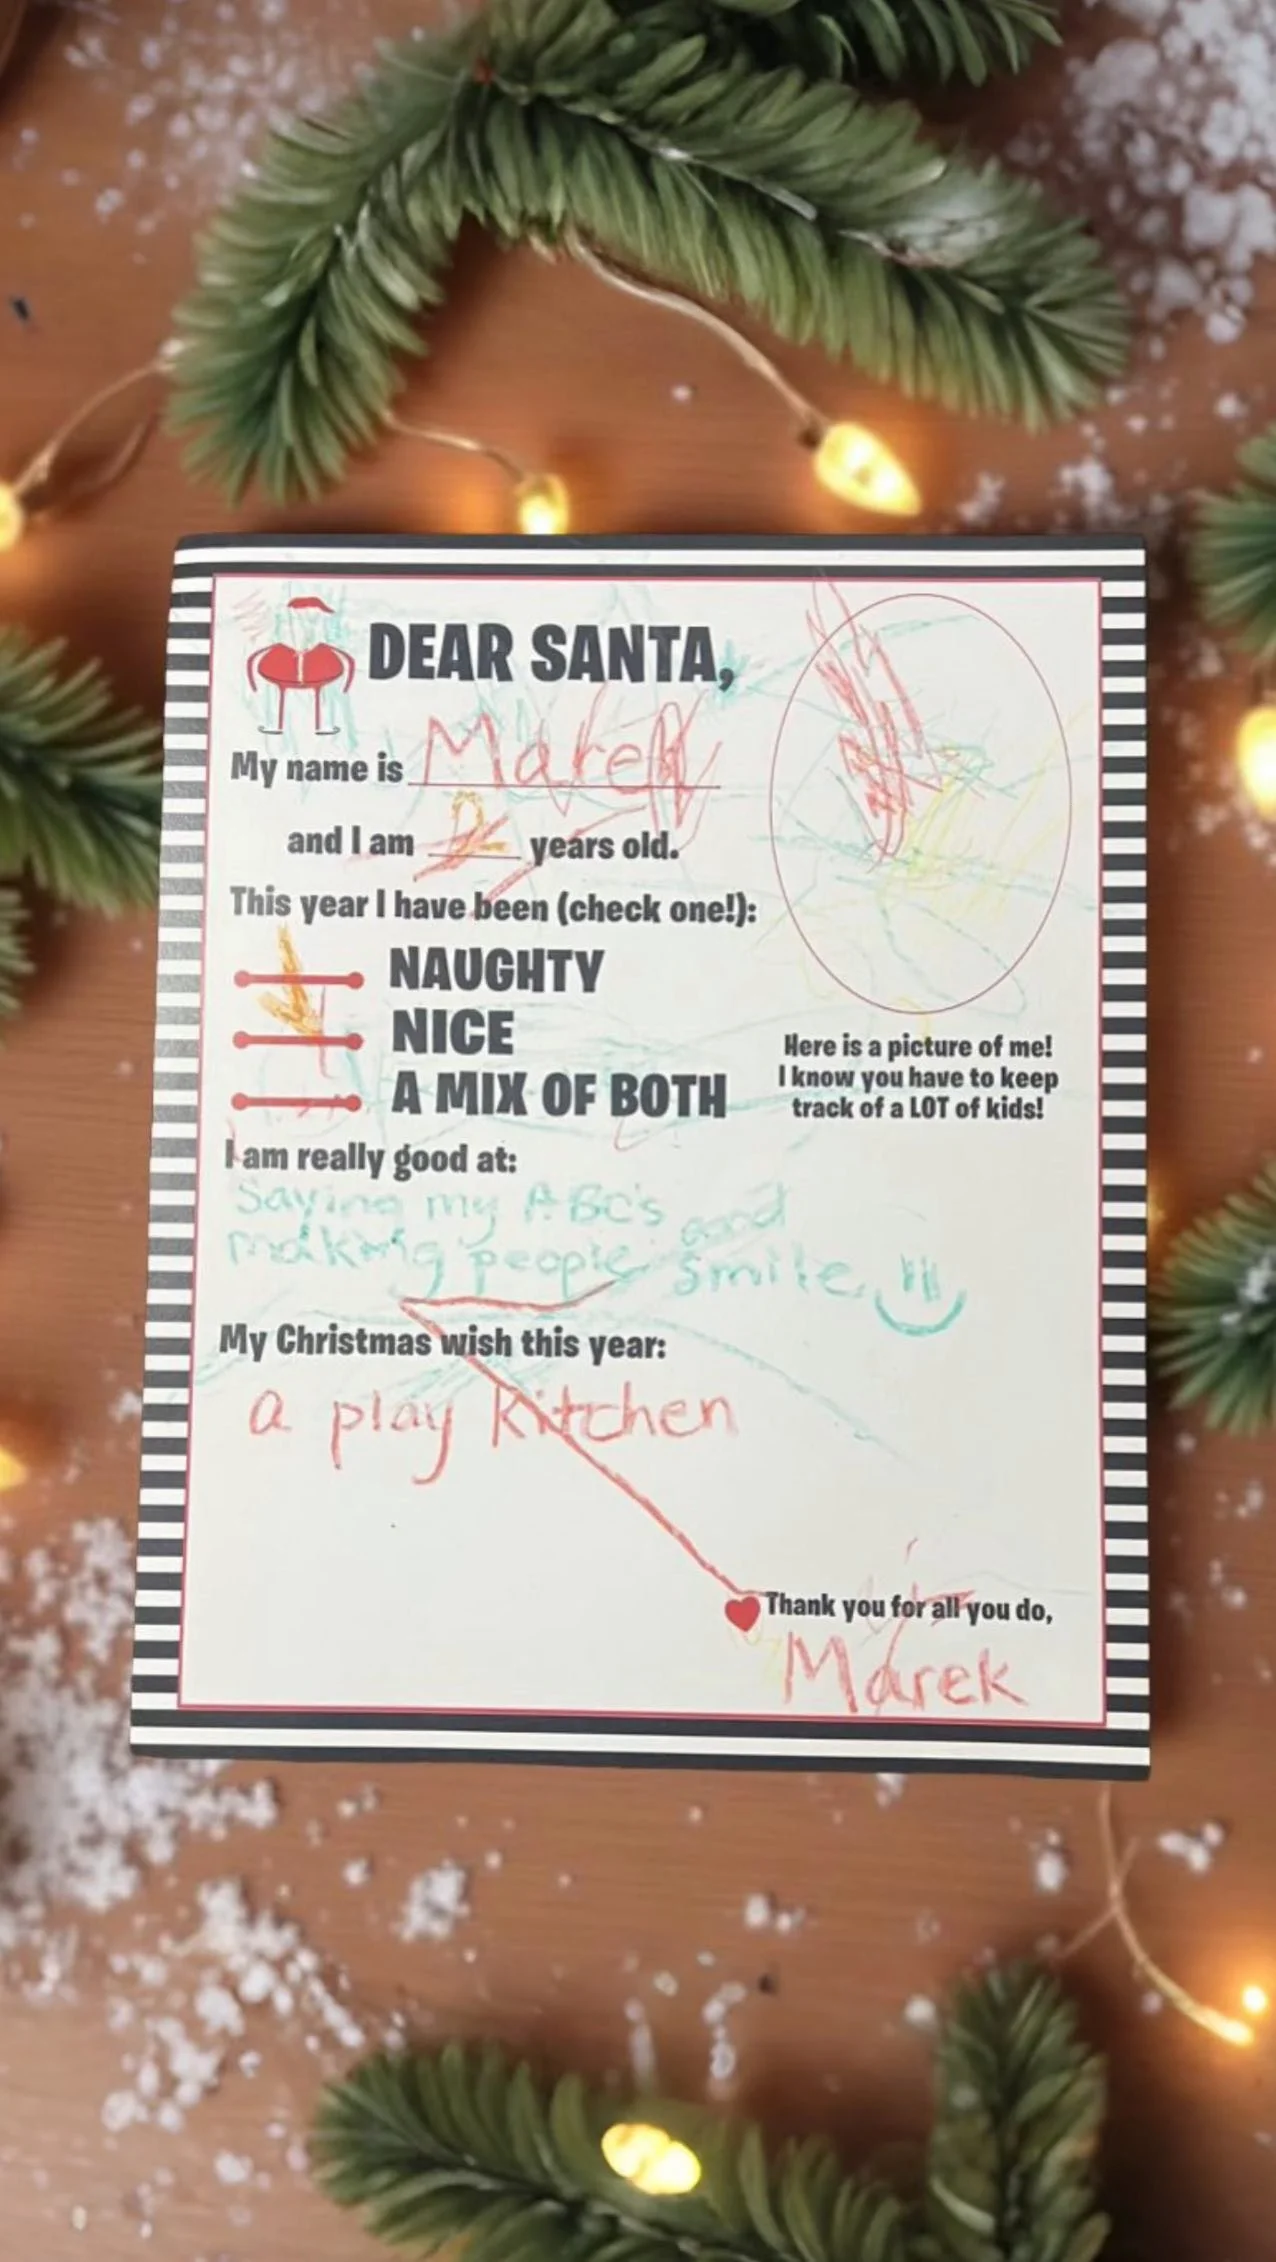 DEAR SANTA,
My name is Marek
and I am 2 years old.
This year I have been (check one!):
NAUGHTY
NICE
A MIX OF BOTH
Here is a picture of me!
I know you have to keep
track of a LOT of kids!
I am really good at:
Saying my ABC's and
making people smile
My Christmas wish this year:
a play kitchen
Thank you for all you do,
Marek